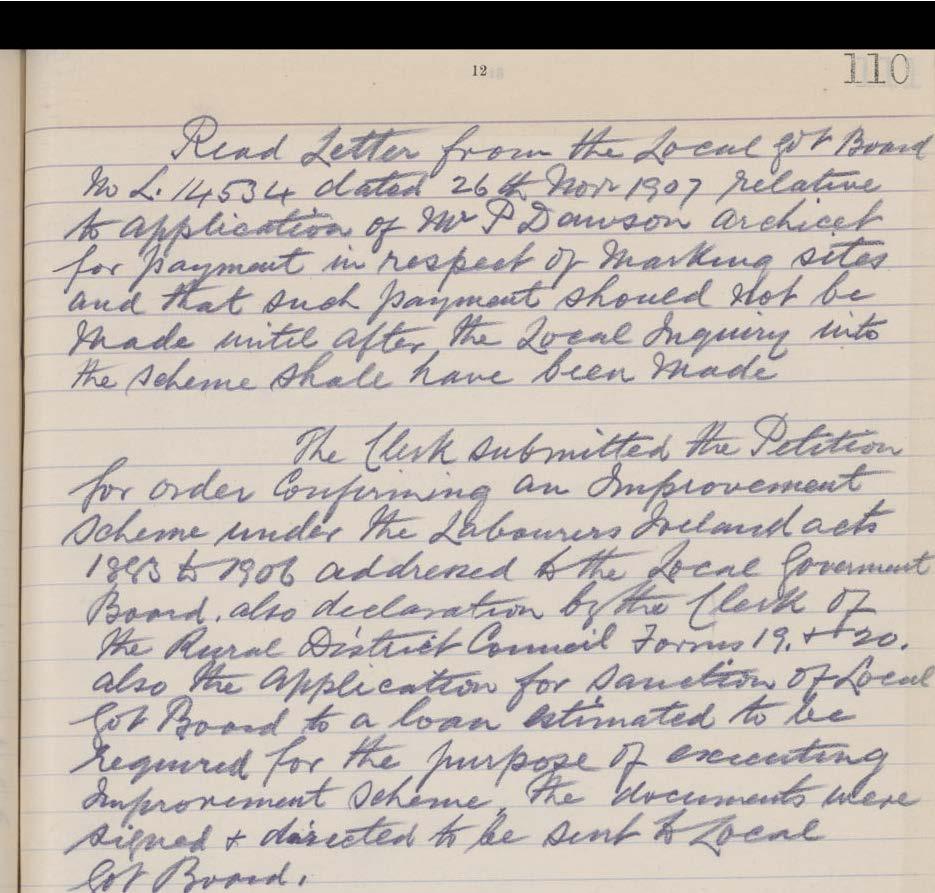 12
110
Read Letter from the Local Govt Board
No L. 14534 dated 26th Novr 1907 relative
to application of Mr P Dawson archicet
for payment in respect of Marking sites
and that such payment should not be
Made until after the Local Inquiry into
the scheme shall have been Made
The Clerk submitted the Petition
for order Confirming an Improvement
Scheme under the Labourers Ireland acts
1883 to 1906 addressed to the Local Goverment
Board. also declaration by the Clerk of
the Rural District Council Forms 19. + 20.
also the application for sanction of Local
Got Board to a loan estimated to be
required for the purpose of executing
Improvement Scheme, The documents were
signed + directed to be sent to Local
Got Board.